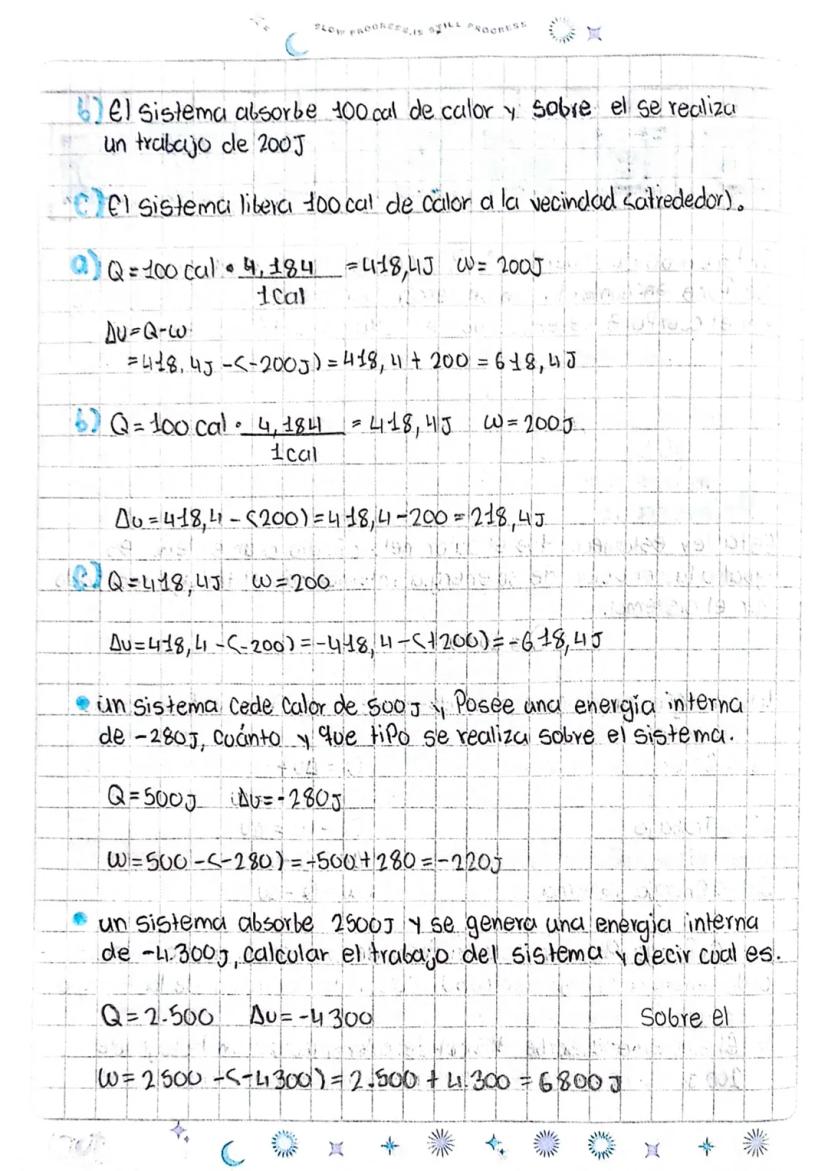 SLOW PROGRESS, IS STILL PROGRESS
b) El sistema absorbe 100 cal de calor y sobre el se realiza
un trabajo de 200J
c) El sistema libera 100 cal de calor a la vecindad (alrededor).
a) Q = 100 cal • 4,184 = 418,4J W = 200J
1 cal
ΔU = Q-W
= 418,4J - (-200J) = 418,4 + 200 = 618,4J
b) Q = 100 cal • 4,184 = 418,4J W = 200J
1 cal
ΔU = 418,4 - (200) = 418,4 - 200 = 218,4J
c) Q = 418,4J W = 200
ΔU = 418,4 - (-200) = -418,4 - (+200) = -618,4J
• un sistema cede calor de 500J y Posee una energía interna
de -280J, cuánto y que tipo se realiza sobre el sistema.
Q = 500J ΔU = -280J
W = 500 - (-280) = -500 + 280 = -220J
• un sistema absorbe 2500J y se genera una energia interna
de -4.300J, calcular el trabajo del sistema y decir cual es.
Q = 2.500 ΔU = -4300 Sobre el
W = 2500 - (-4300) = 2.500 + 4.300 = 6800J